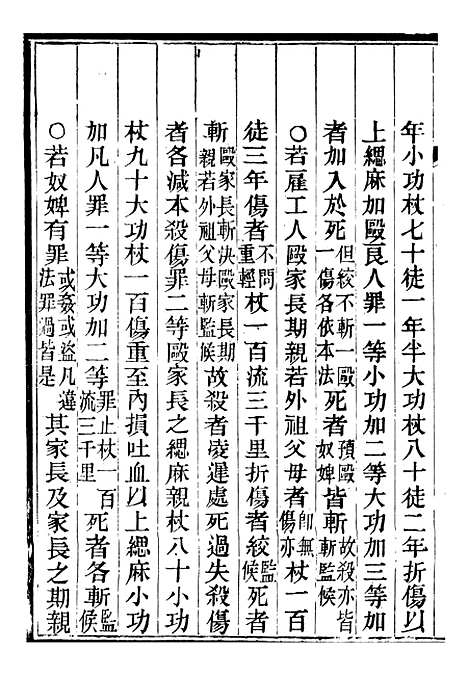 年小功杖七十徒一年半大功杖八十徒二年折傷以
上緦麻加毆良人罪一等小功加二等大功加三等加
者加入於死但絞不斬一毆一傷各依本法死者預毆奴婢皆斬故殺亦皆斬監候
○若雇工人毆家長期親若外祖父母者即無傷亦杖一百
徒三年傷者不問重輕杖一百流三千里折傷者絞監候死者
斬毆家長斬決毆家長期親若外祖父母斬監候故殺者凌遲處死過失殺傷
者各減本殺傷罪二等毆家長之緦麻親杖八十小功
杖九十大功杖一百傷重至內損吐血以上緦麻小功
加凡人罪一等大功加二等罪止杖一百流三千里死者各斬監候
○若奴婢有罪或姦或盜凡違法罪過皆是其家長及家長之期親